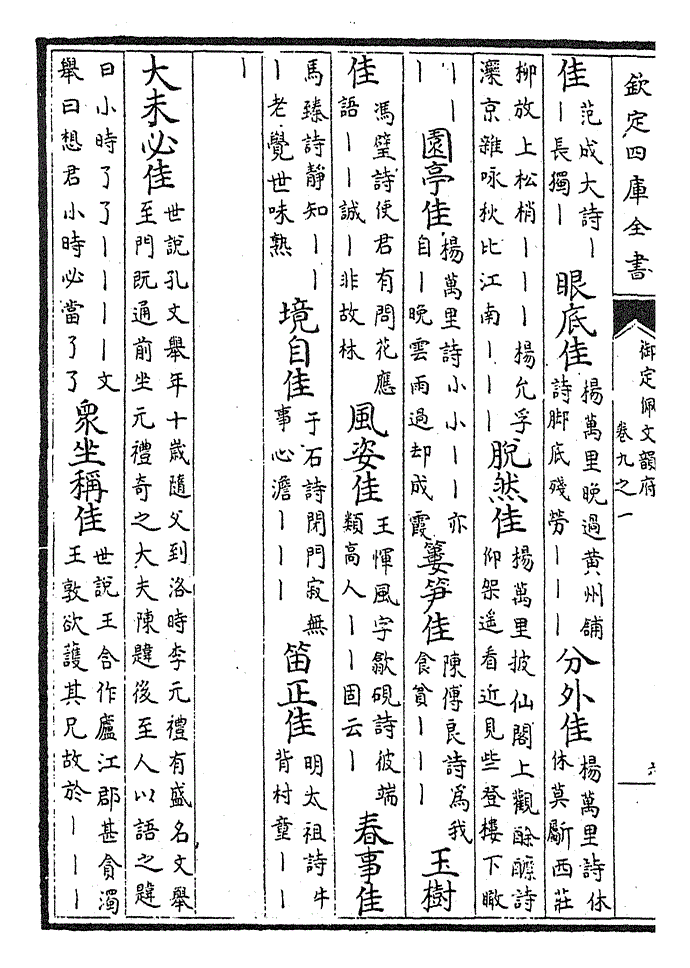 欽定四庫全書
御定佩文韻府
卷九之一
六
佳
范成大詩｜
｜長獨｜
眼底佳
楊萬里晚過黄州舖
詩脚底殘勞｜｜｜
分外佳
楊萬里詩休
休莫斸西莊
柳放上松梢｜｜｜楊允孚
灤京雜咏秋比江南｜｜｜
脫然佳
楊萬里披仙閣上觀酴醾詩
仰架遥看近見些登樓下瞰
｜｜
｜
園亭佳
楊萬里詩小小｜｜亦
自｜晚雲雨過却成霞
蔞笋佳
陳傅良詩為我
食貧｜｜｜
玉樹
佳
馮璧詩使君有問花應
語｜｜誠｜非故林
風姿佳
王惲風字歙硯詩彼端
類高人｜｜固云｜
春事佳
馬臻詩静知｜｜
｜老覺世味熟
境自佳
于石詩閉門寂無
事心澹｜｜｜
笛正佳
明太祖詩牛
背村童｜｜
｜
大未必佳
世說孔文舉年十歲隨父到洛時李元禮有盛名文舉
至門既通前坐元禮奇之大夫陳韙後至人以語之韙
曰小時了了｜｜｜｜文
舉曰想君小時必當了了
衆坐稱佳
世說王含作廬江郡甚貪濁
王敦欲護其兄故於｜｜｜